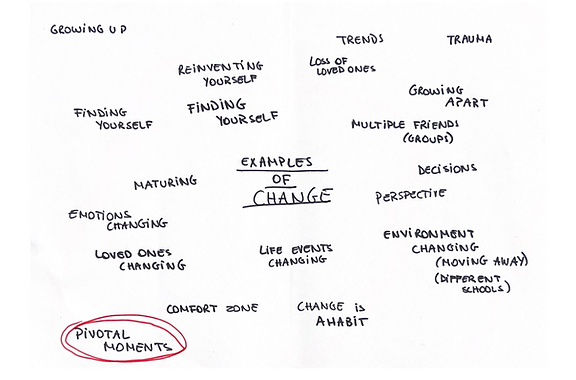 GROWING UP
TRENDS
TRAUMA
REINVENTING
YOURSELF
LOSS OF
LOVED ONES
GROWING
APART
FINDING
YOURSELF
FINDING
YOURSELF
MULTIPLE FRIENDS
(GROUPS)
EXAMPLES
OF
CHANGE
DECISIONS
MATURING
PERSPECTIVE
EMOTIONS
CHANGING
ENVIRONMENT
CHANGING
(MOVING AWAY)
(DIFFERENT
SCHOOLS)
LOVED ONES
CHANGING
LIFE EVENTS
CHANGING
COMFORT ZONE
CHANGE is
A HABIT
PIVOTAL
MOMENTS